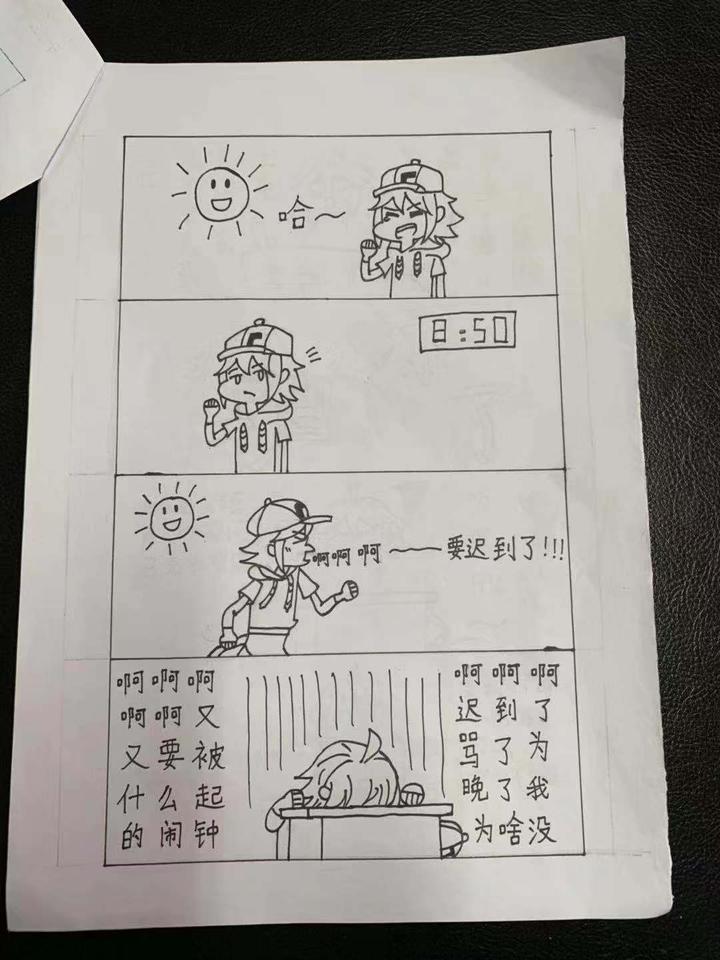 哈～
8:50
啊啊啊～要迟到了!!!
啊啊啊
啊啊又
又要被
什么起
的闹钟
啊啊啊
迟到了
骂了为
晚了我
为啥没